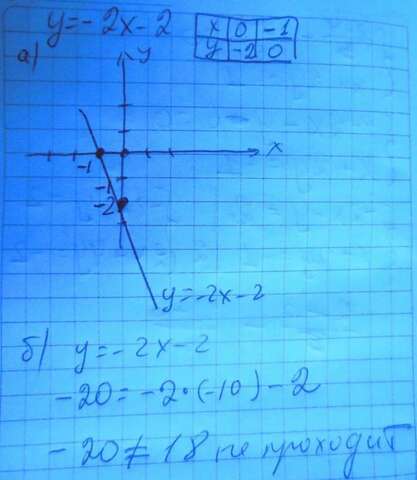 y=-2x-2
x 0 -1
y -2 0
а)
y
x
-1
-1
-2
y=-2x-2
б) y=-2x-2
-20=-2·(-10)-2
-20≠18 не проходит